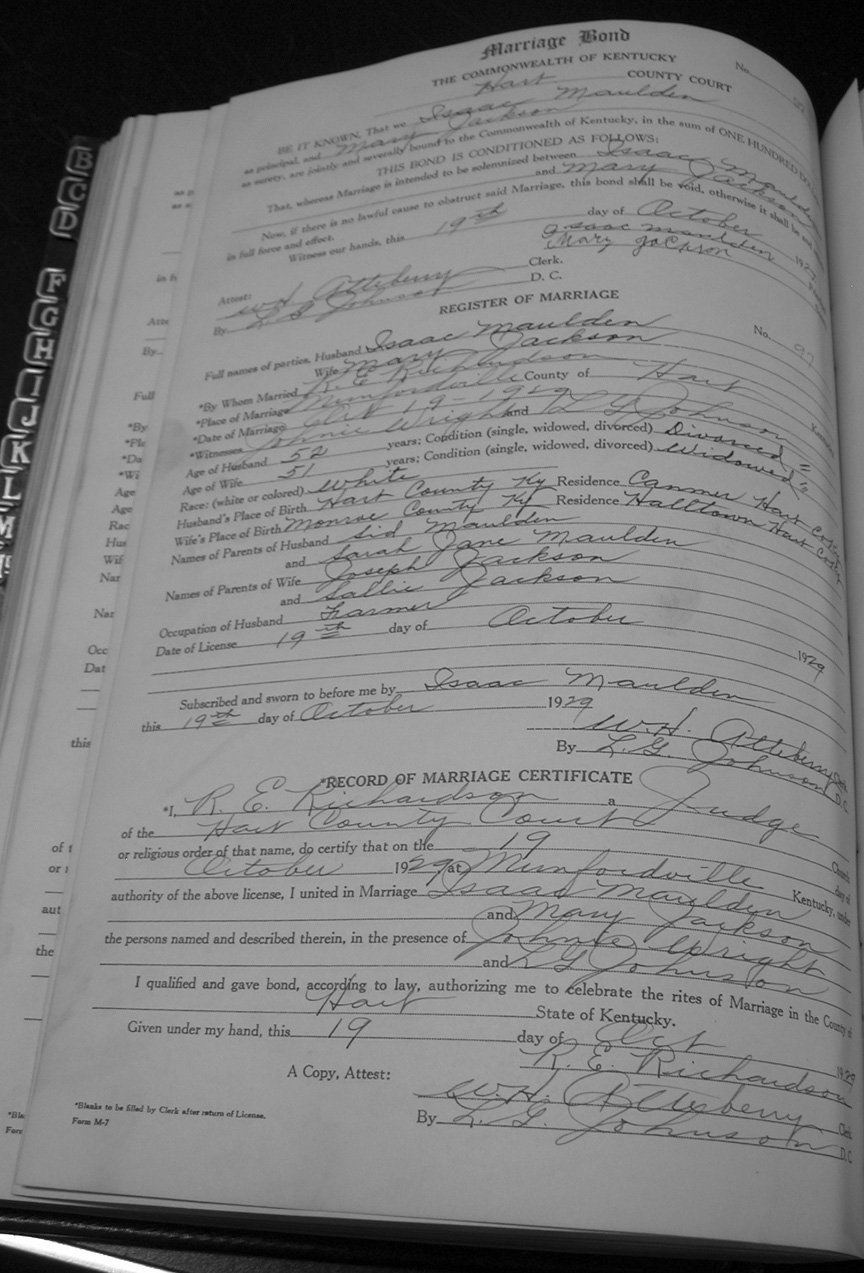 Marriage Bond
THE COMMONWEALTH OF KENTUCKY No.
Hart COUNTY COURT
BE IT KNOWN, That we Isaac Maulden
as principal, and Mary Jackson
as surety, are jointly and severally bound to the Commonwealth of Kentucky, in the sum of ONE HUNDRED
THIS BOND IS CONDITIONED AS FOLLOWS:
That, whereas Marriage is intended to be solemnized between Isaac Maulden
and Mary Jackson
Now, if there is no lawful cause to obstruct said Marriage, this bond shall be void, otherwise it shall be
in full force and effect.
Witness our hands, this 19th day of October 192
Isaac Maulden
Mary Jackson
Attest:
W.H. Atteberry Clerk.
By L G Johnson D. C.
REGISTER OF MARRIAGE
No. 97
Full names of parties, Husband Isaac Maulden
Wife Mary Jackson
*By Whom Married R. E Richardson
*Place of Marriage Munfordville County of Hart
*Date of Marriage Oct 19-1929
*Witnesses Johnie Wright and L G Johnson
Age of Husband 52 years; Condition (single, widowed, divorced) Divorced
Age of Wife 51 years; Condition (single, widowed, divorced) Widowed
Race: (white or colored) White
Husband's Place of Birth Hart County Ky Residence Canmer Hart Co
Wife's Place of Birth Monroe County Ky Residence Halltown Hart Co
Names of Parents of Husband Sid Maulden
and Sarah Jane Maulden
Names of Parents of Wife Joseph Jackson
and Sallie Jackson
Occupation of Husband Farmer
Date of License 19th day of October 1929
Subscribed and sworn to before me by Isaac Maulden
this 19th day of October 1929
W.H. Atteberry
By L. G. Johnson D. C.
*RECORD OF MARRIAGE CERTIFICATE
*I, R. E. Richardson a Judge
of the Hart County Court Church
or religious order of that name, do certify that on the 19 day of
October 1929 at Munfordville Kentucky, under
authority of the above license, I united in Marriage Isaac Maulden
and Mary Jackson
the persons named and described therein, in the presence of Johnie Wright
and L G Johnson
I qualified and gave bond, according to law, authorizing me to celebrate the rites of Marriage in the County of
Hart State of Kentucky.
Given under my hand, this 19 day of Oct 1929
R. E. Richardson
A Copy, Attest:
W.H. Atteberry Clerk
By L. G. Johnson D.C.
*Blanks to be filled by Clerk after return of License.
Form M-7
B
C
D
F
G
H
I
J
K
L
M